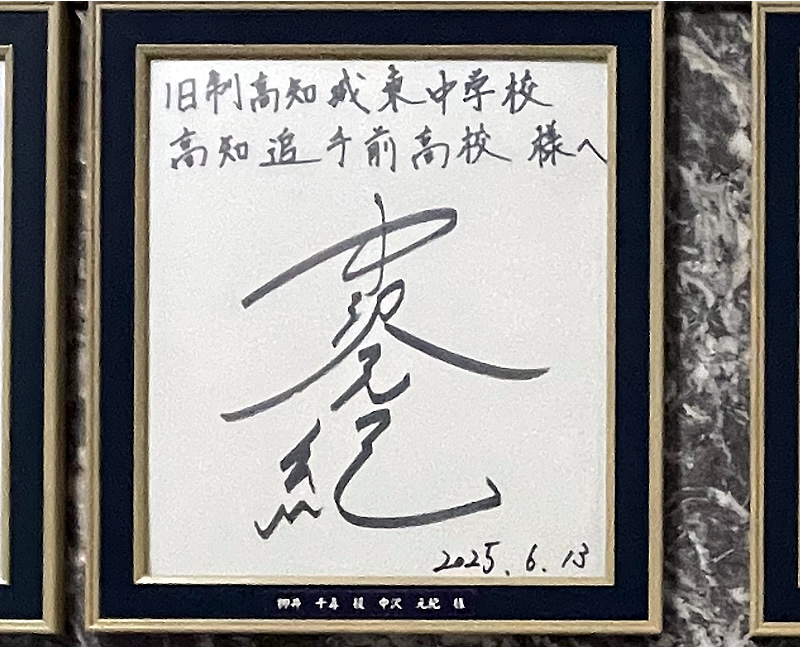 旧制高知城東中学校
高知追手前高校 様へ
中沢元紀
2025.6.13
柳井 千尋 役 中沢 元紀 様